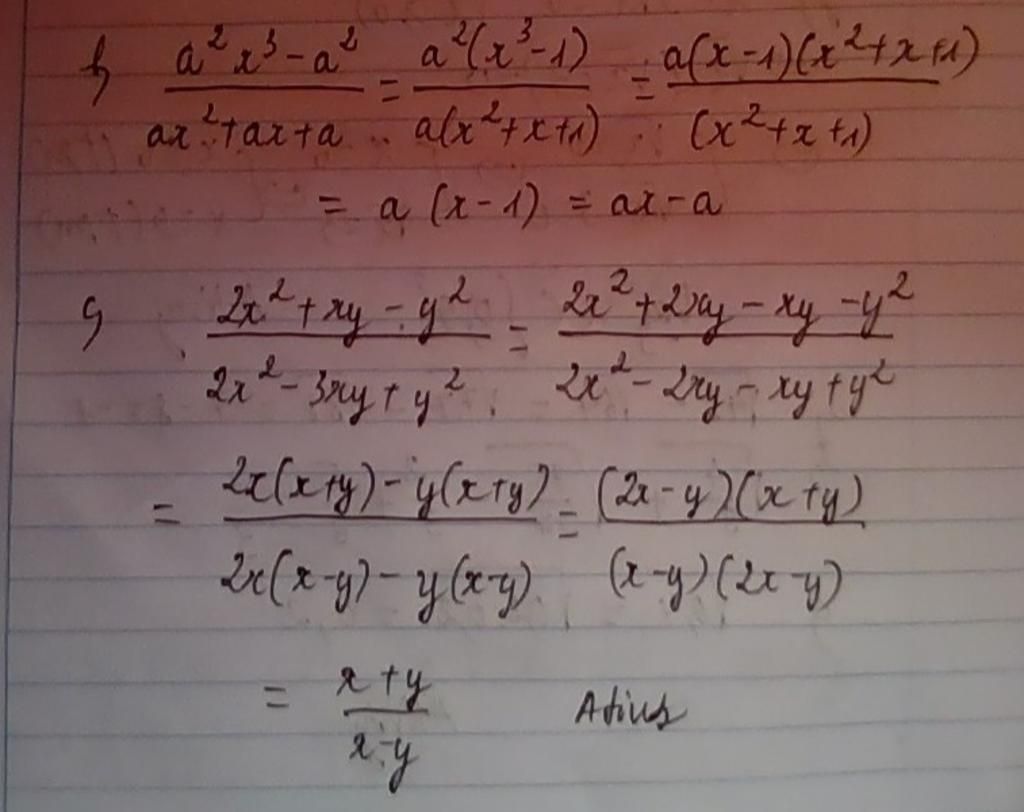 b) \frac{a^2x^3-a^2}{ax^2+ax+a} = \frac{a^2(x^3-1)}{a(x^2+x+1)} = \frac{a(x-1)(x^2+x+1)}{(x^2+x+1)}
= a(x-1) = ax-a
c) \frac{2x^2+xy-y^2}{2x^2-3xy+y^2} = \frac{2x^2+2xy-xy-y^2}{2x^2-2xy-xy+y^2}
= \frac{2x(x+y)-y(x+y)}{2x(x-y)-y(x-y)} = \frac{(2x-y)(x+y)}{(x-y)(2x-y)}
= \frac{x+y}{x-y} Atius